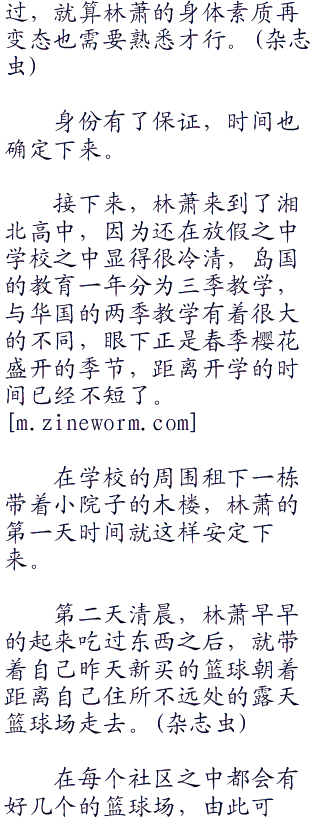 过，就算林萧的身体素质再
变态也需要熟悉才行。(杂志
虫)
身份有了保证，时间也
确定下来。
接下来，林萧来到了湘
北高中，因为还在放假之中
学校之中显得很冷清，岛国
的教育一年分为三季教学，
与华国的两季教学有着很大
的不同，眼下正是春季樱花
盛开的季节，距离开学的时
间已经不短了。
[m.zineworm.com]
在学校的周围租下一栋
带着小院子的木楼，林萧的
第一天时间就这样安定下
来。
第二天清晨，林萧早早
的起来吃过东西之后，就带
着自己昨天新买的篮球朝着
距离自己住所不远处的露天
篮球场走去。(杂志虫)
在每个社区之中都会有
好几个的篮球场，由此可